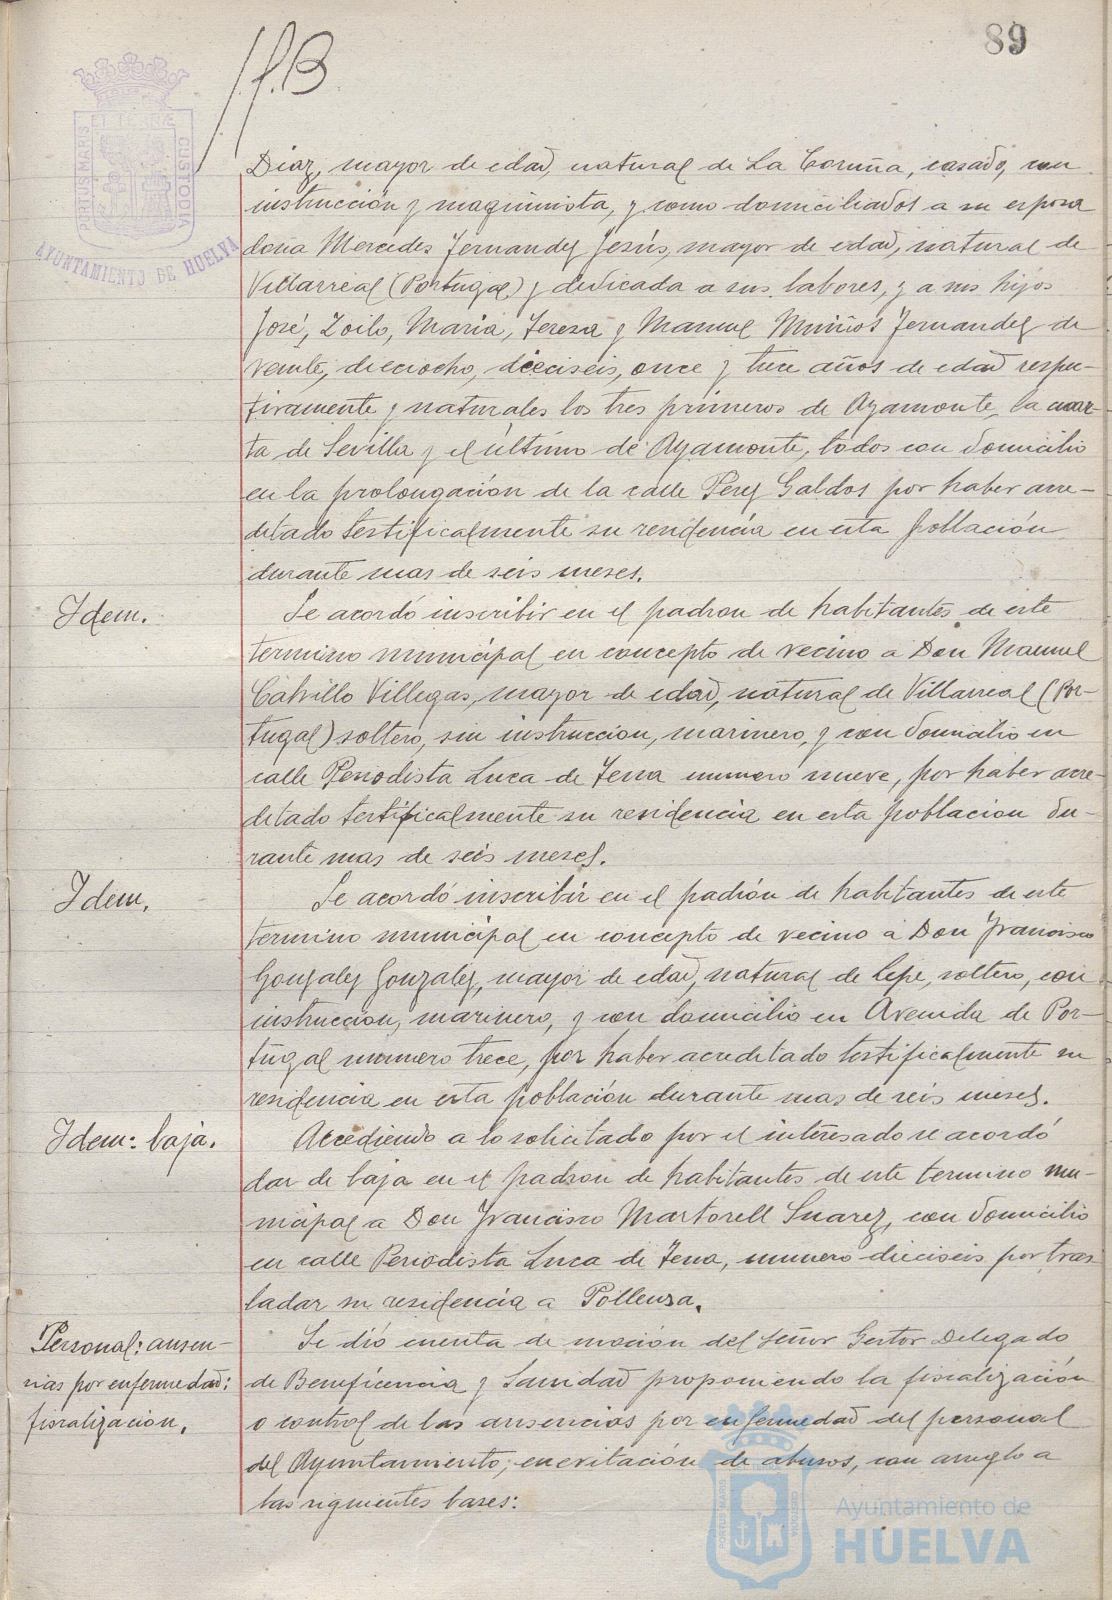 89
PORTUS MARIS
ET TERRAE
CUSTODIA
AYUNTAMIENTO DE HUELVA
Diaz, mayor de edad, natural de La Coruña, casado, con
instrucción y maquinista, y como domiciliados a su esposa
doña Mercedes Fernandez Jesús, mayor de edad, natural de
Villarreal (Portugal) y dedicada a sus labores, y a sus hijos
José, Zoilo, Maria, Teresa y Manuel Muiños Fernandez de
veinte, dieciocho, dieciseis, once y trece años de edad respec-
tivamente y naturales los tres primeros de Ayamonte, la cuar-
ta de Sevilla y el último de Ayamonte, todos con domicilio
en la prolongación de la calle Perez Galdos por haber acre-
ditado testificalmente su residencia en esta población
durante mas de seis meses.
Idem.
Se acordó inscribir en el padron de habitantes de este
termino municipal en concepto de vecino a Don Manuel
Calvillo Villegas, mayor de edad, natural de Villarreal (Por-
tugal) soltero, sin instruccion, marinero, y con domicilio en
calle Periodista Luca de Tena numero nueve, por haber acre-
ditado testificalmente su residencia en esta poblacion du-
rante mas de seis meses.
Idem.
Se acordó inscribir en el padrón de habitantes de este
termino municipal en concepto de vecino a Don Francisco
Gonzalez Gonzalez, mayor de edad, natural de Lepe, soltero, con
instruccion, marinero, y con domicilio en Avenida de Por-
tugal numero trece, por haber acreditado testificalmente su
residencia en esta población durante mas de seis meses.
Idem: baja.
Accediendo a lo solicitado por el interesado se acordó
dar de baja en el padron de habitantes de este termino mu-
nicipal a Don Francisco Martorell Suarez, con domicilio
en calle Periodista Luca de Tena, numero dieciseis por tras
ladar su residencia a Pollensa.
Personal: ausen-
cias por enfermedad:
fiscalización.
Se dió cuenta de moción del Señor Gestor Delegado
de Beneficencia y Sanidad proponiendo la fiscalización
o control de las ausencias por enfermedad del personal
del Ayuntamiento, en evitación de abusos, con arreglo a
las siguientes bases:
PORTUS MARIS
CUSTODIA
Ayuntamiento de
HUELVA